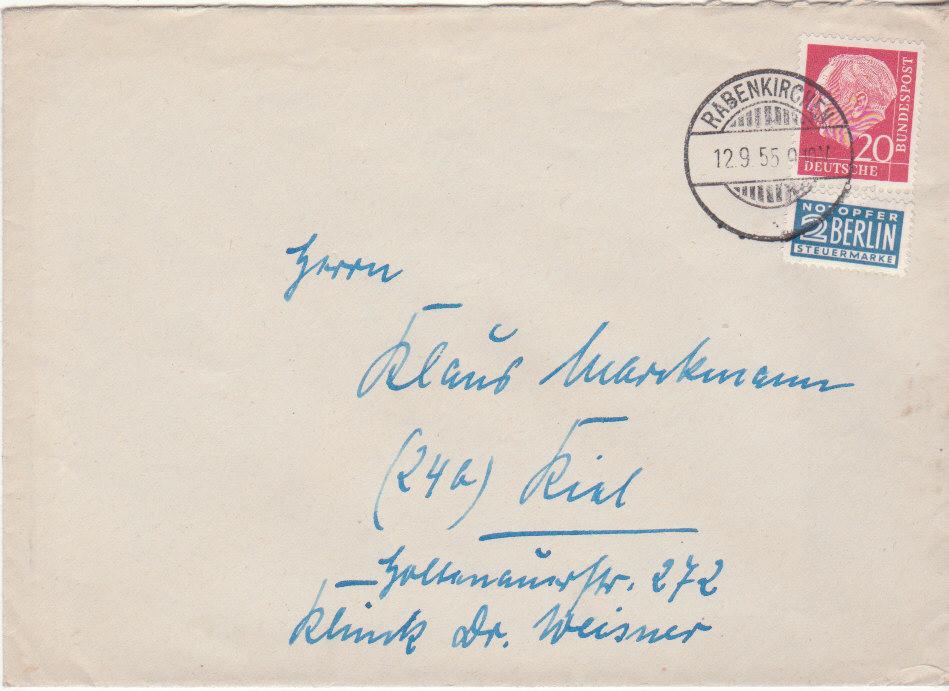 RABENKIRCHEN
12.9.55.9
20
BUNDESPOST
DEUTSCHE
NOTOPFER
2 BERLIN
STEUERMARKE
Herrn
Klaus Marckmann
(24b) Kiel
Holtenauerstr. 272
Klinik Dr. Weisner